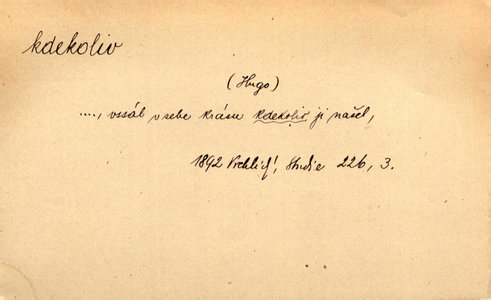 kdekoliv
(Hugo)
...., vssál v sebe krásu kdekoliv ji našel,
1892 Vrchlický, Studie 226, 3.